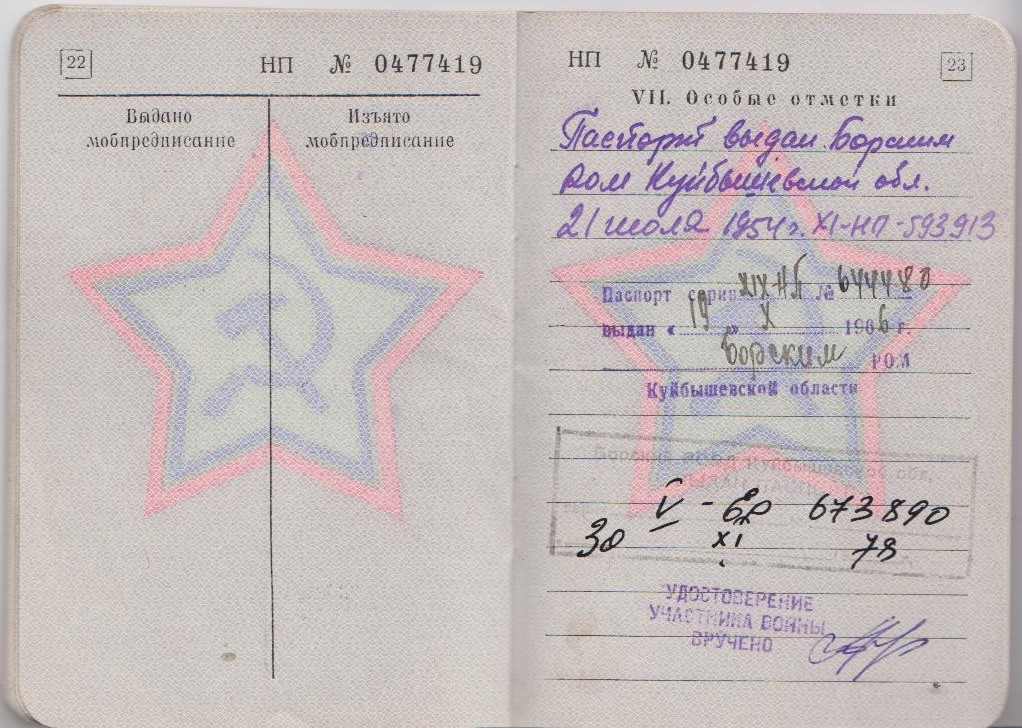 22
НП № 0477419
Выдано
мобпредписание
Изъято
мобпредписание
НП № 0477419
23
VII. Особые отметки
Паспорт выдан Борским
РОМ Куйбышевской обл.
21 июля 1954 г. XI-НП-593913
Паспорт серии XIX-НБ № 644480
выдан « 19 » X 1966 г.
Борским РОМ
Куйбышевской области
Куйбышевской обл.
V-ЕР 673890
30 XI 78
УДОСТОВЕРЕНИЕ
УЧАСТНИКА ВОЙНЫ
ВРУЧЕНО